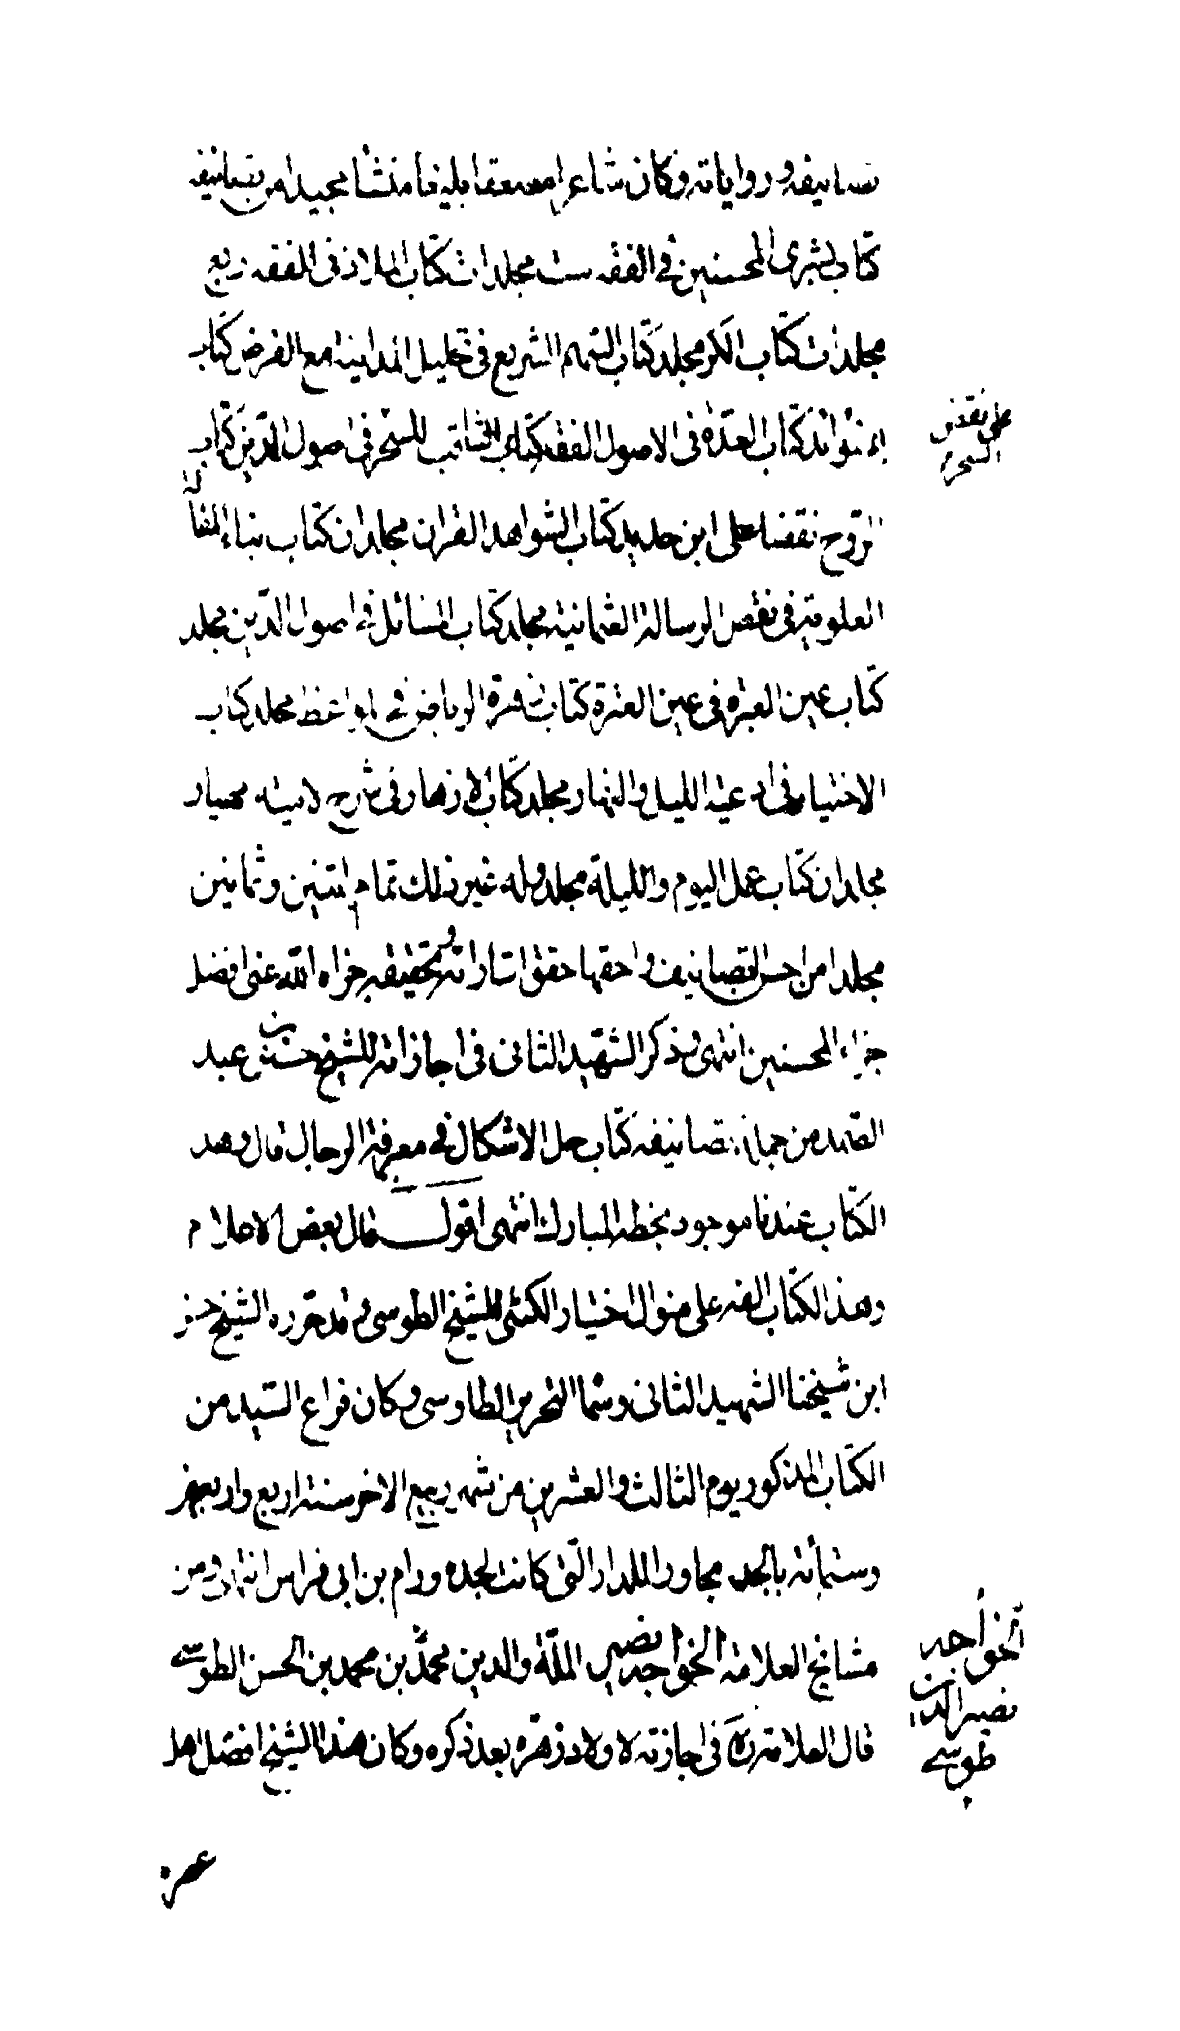 تصانيفه و رواياته وكان شاعرا مصقعا بليغا منشأ مجيدا من تصانيفه
كتاب بشرى المحسنين في الفقه ست مجلدات كتاب الملاذ في الفقه اربع
مجلدات كتاب الكر مجلد كتاب السهم السريع في تحليل المداينة مع القرض كتاب
الفوائد العدة في الاصول الفقه كتاب الثاقب المسخر في اصول الدين كتاب
على نقض المسخر
الروح نقضا على ابن حديد كتاب الشواهد القران مجلدان كتاب بناء المقالة
العلوية في نقض الرسالة العثمانية مجلد كتاب المسائل في اصول الدين مجلد
كتاب عين العبرة في غبن العترة كتاب زهرة الرياض في المواعظ مجلد كتاب
الاختيار في ادعية الليل والنهار مجلد كتاب الازهار في شرح لامية مهيار
مجلدان كتاب عمل اليوم والليلة مجلد وله غير ذلك تمام اثنين وثمانين
مجلدا من احسن التصانيف واحقها حقق اشاراته وتحقيقه جزاه الله عنى افضل
جزاء المحسنين انتهى وذكر الشهيد الثانى في اجازاته للشيخ حسين بن عبد
الصمد من جملة تصانيفه كتاب حل الاشكال في معرفة الرجال قال وهذا
الكتاب عندنا موجود بخطه المبارك انتهى اقول قال بعض الاعلام
وهذا الكتاب الفه على منوال اختيار الكشى للشيخ الطوسى و قد حرره الشيخ حسن
ابن شيخنا الشهيد الثانى وسماه التحرير الطاوسى وكان فراغ السيد من
الكتاب المذكور يوم الثالث والعشرين من شهر ربيع الاخر سنة اربع واربعين
وستمأته بالحلة مجاور الدار التى كانت لجده ورام بن ابى فراس انتهى ومن
مشايخ العلامة الخواجه نصير الملة والدين محمد بن محمد بن الحسن الطوسي
الخواجه نصير الدين طوسي
قال العلامة ره في اجازته لاولاد زهرة بعد ذكره وكان هذا الشيخ افضل اهل
عصره